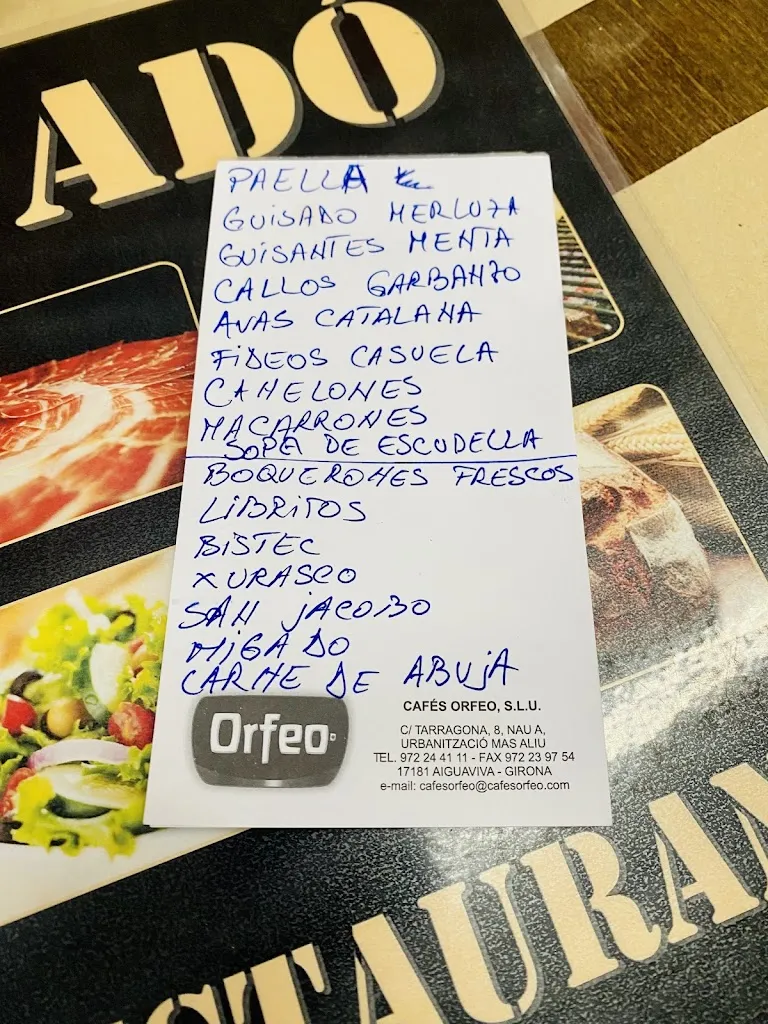 ADÓ
PAELLA
GUISADO MERLUZA
GUISANTES MENTA
CALLOS GARBANZO
AVAS CATALANA
FIDEOS CASUELA
CANELONES
MACARRONES
SOPA DE ESCUDELLA
BOQUERONES FRESCOS
LIBRITOS
BISTEC
XURASCO
SAN JACOBO
HIGADO
CARNE DE ABUJA
Orfeo
CAFÉS ORFEO, S.L.U.
C/ TARRAGONA, 8, NAU A,
URBANITZACIÓ MAS ALIU
TEL. 972 24 41 11 - FAX 972 23 97 54
17181 AIGUAVIVA - GIRONA
e-mail: cafesorfeo@cafesorfeo.com
STAURAN